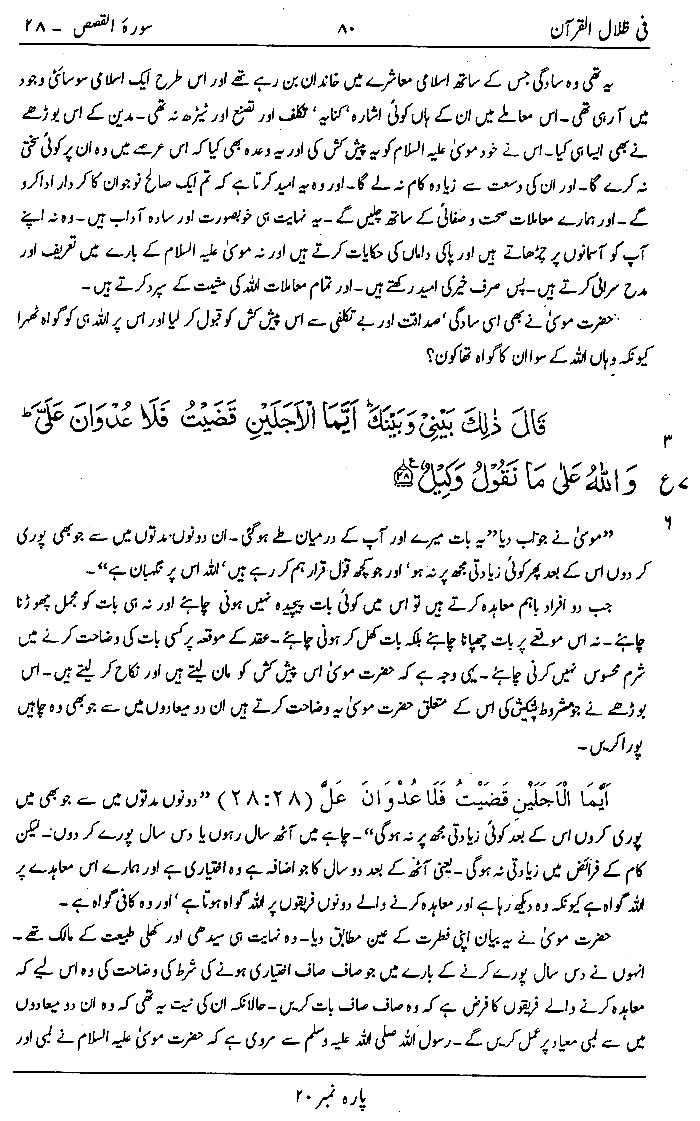 فی ظلال القرآن ۸۰ سورۃ القصص - ۲۸
یہ تھی وہ سادگی جس کے ساتھ اسلامی معاشرے میں خاندان بن رہے تھے اور اس طرح ایک اسلامی سوسائٹی وجود
میں آ رہی تھی - اس معاملے میں ان کے ہاں کوئی اشارہ ‘ کنایہ ‘ تکلف اور تصنع اور ٹیڑھ نہ تھی - مدین کے اس بوڑھے
نے بھی ایسا ہی کیا - اس نے خود موسیٰ علیہ السلام کو یہ پیش کش کی اور یہ وعدہ بھی کیا کہ اس عرصے میں وہ ان پر کوئی سختی
نہ کرے گا - اور ان کی وسعت سے زیادہ کام نہ لے گا - اور وہ یہ امید کرتا ہے کہ تم ایک صالح نوجوان کا کردار ادا کرو
گے - اور ہمارے معاملات صحت و صفائی کے ساتھ چلیں گے - یہ نہایت ہی خوبصورت اور سادہ آداب ہیں - وہ نہ اپنے
آپ کو آسمانوں پر چڑھاتے ہیں اور پاکی داماں کی حکایات کرتے ہیں اور نہ موسیٰ علیہ السلام کے بارے میں تعریف اور
مدح سرائی کرتے ہیں - پس صرف خیر کی امید رکھتے ہیں - اور تمام معاملات اللہ کی مشیت کے سپرد کرتے ہیں -
حضرت موسیٰ نے بھی اسی سادگی ‘ صداقت اور بے تکلفی سے اس پیش کش کو قبول کر لیا اور اس پر اللہ ہی کو گواہ ٹھہرا
کیونکہ وہاں اللہ کے سوا ان کا گواہ تھا کون؟
قَالَ ذٰلِكَ بَیْنِیْ وَ بَیْنَكَ ؕ اَیَّمَا الْاَجَلَیْنِ قَضَیْتُ فَلَا عُدْوَانَ عَلَیَّ ؕ
وَ اللّٰهُ عَلٰی مَا نَقُوْلُ وَكِیْلٌ ﴿۲۸﴾ ۳ ع ۷ ۶
”موسیٰ نے جواب دیا ”یہ بات میرے اور آپ کے درمیان طے ہو گئی - ان دونوں مدتوں میں سے جو بھی پوری
کر دوں اس کے بعد پھر کوئی زیادتی مجھ پر نہ ہو ‘ اور جو کچھ قول قرار ہم کر رہے ہیں ‘ اللہ اس پر نگہبان ہے“ -
جب دو افراد باہم معاہدہ کرتے ہیں تو اس میں کوئی بات پیچیدہ نہیں ہونی چاہئے اور نہ ہی بات کو مجمل چھوڑنا
چاہئے - نہ اس موقعے پر بات چھپانا چاہئے بلکہ بات کھل کر ہونی چاہئے - عقد کے موقعہ پر کسی بات کی وضاحت کرنے میں
شرم محسوس نہیں کرنی چاہئے - یہی وجہ ہے کہ حضرت موسیٰ اس پیش کش کو مان لیتے ہیں اور نکاح کر لیتے ہیں - اس
بوڑھے نے جو مشروط پیشکش کی اس کے متعلق حضرت موسیٰ یہ وضاحت کرتے ہیں ان دو میعادوں میں سے جو بھی وہ چاہیں
پورا کریں -
اَیَّمَا الْاَجَلَیْنِ قَضَیْتُ فَلَا عُدْوَانَ عَلَیَّ (۲۸ : ۲۸) ”دونوں مدتوں میں سے جو بھی میں
پوری کروں اس کے بعد کوئی زیادتی مجھ پر نہ ہوگی“ - چاہے میں آٹھ سال رہوں یا دس سال پورے کر دوں - لیکن
کام کے فرائض میں زیادتی نہ ہوگی - یعنی آٹھ کے بعد دو سال کا جو اضافہ ہے وہ اختیاری ہے اور ہمارے اس معاہدے پر
اللہ گواہ ہے کیونکہ وہ دیکھ رہا ہے اور معاہدہ کرنے والے دونوں فریقوں پر اللہ گواہ ہوتا ہے ‘ اور وہ کافی گواہ ہے -
حضرت موسیٰ نے یہ بیان اپنی فطرت کے عین مطابق دیا - وہ نہایت ہی سیدھی اور کھلی طبیعت کے مالک تھے -
انہوں نے دس سال پورے کرنے کے بارے میں جو صاف صاف اختیاری ہونے کی شرط کی وضاحت کی وہ اس لیے کہ
معاہدہ کرنے والے فریقوں کا فرض ہے کہ وہ صاف صاف بات کریں - حالانکہ ان کی نیت یہ تھی کہ وہ ان دو میعادوں
میں سے لمبی میعاد پر عمل کریں گے - رسول اللہ صلی اللہ علیہ وسلم سے مروی ہے کہ حضرت موسیٰ علیہ السلام نے لمبی اور
پارہ نمبر ۲۰